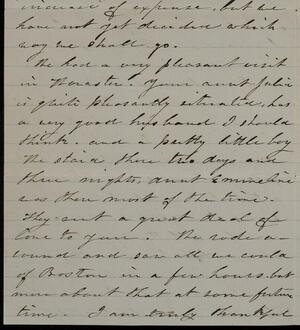 increase of expense, but we
have not yet decided which
way we shall go.
We had a very pleasant visit
in Worcester. Your aunt Julia
is quite pleasantly situated, has
a very good husband I should
think and a pretty little boy
We staid there two days and
three nights, aunt Emmeline
was there most of the time.
They sent a great deal of
love to you. We rode a-
round and saw all we could
of Boston in a few hours, but
more about that at some future
time. I am truly thankful